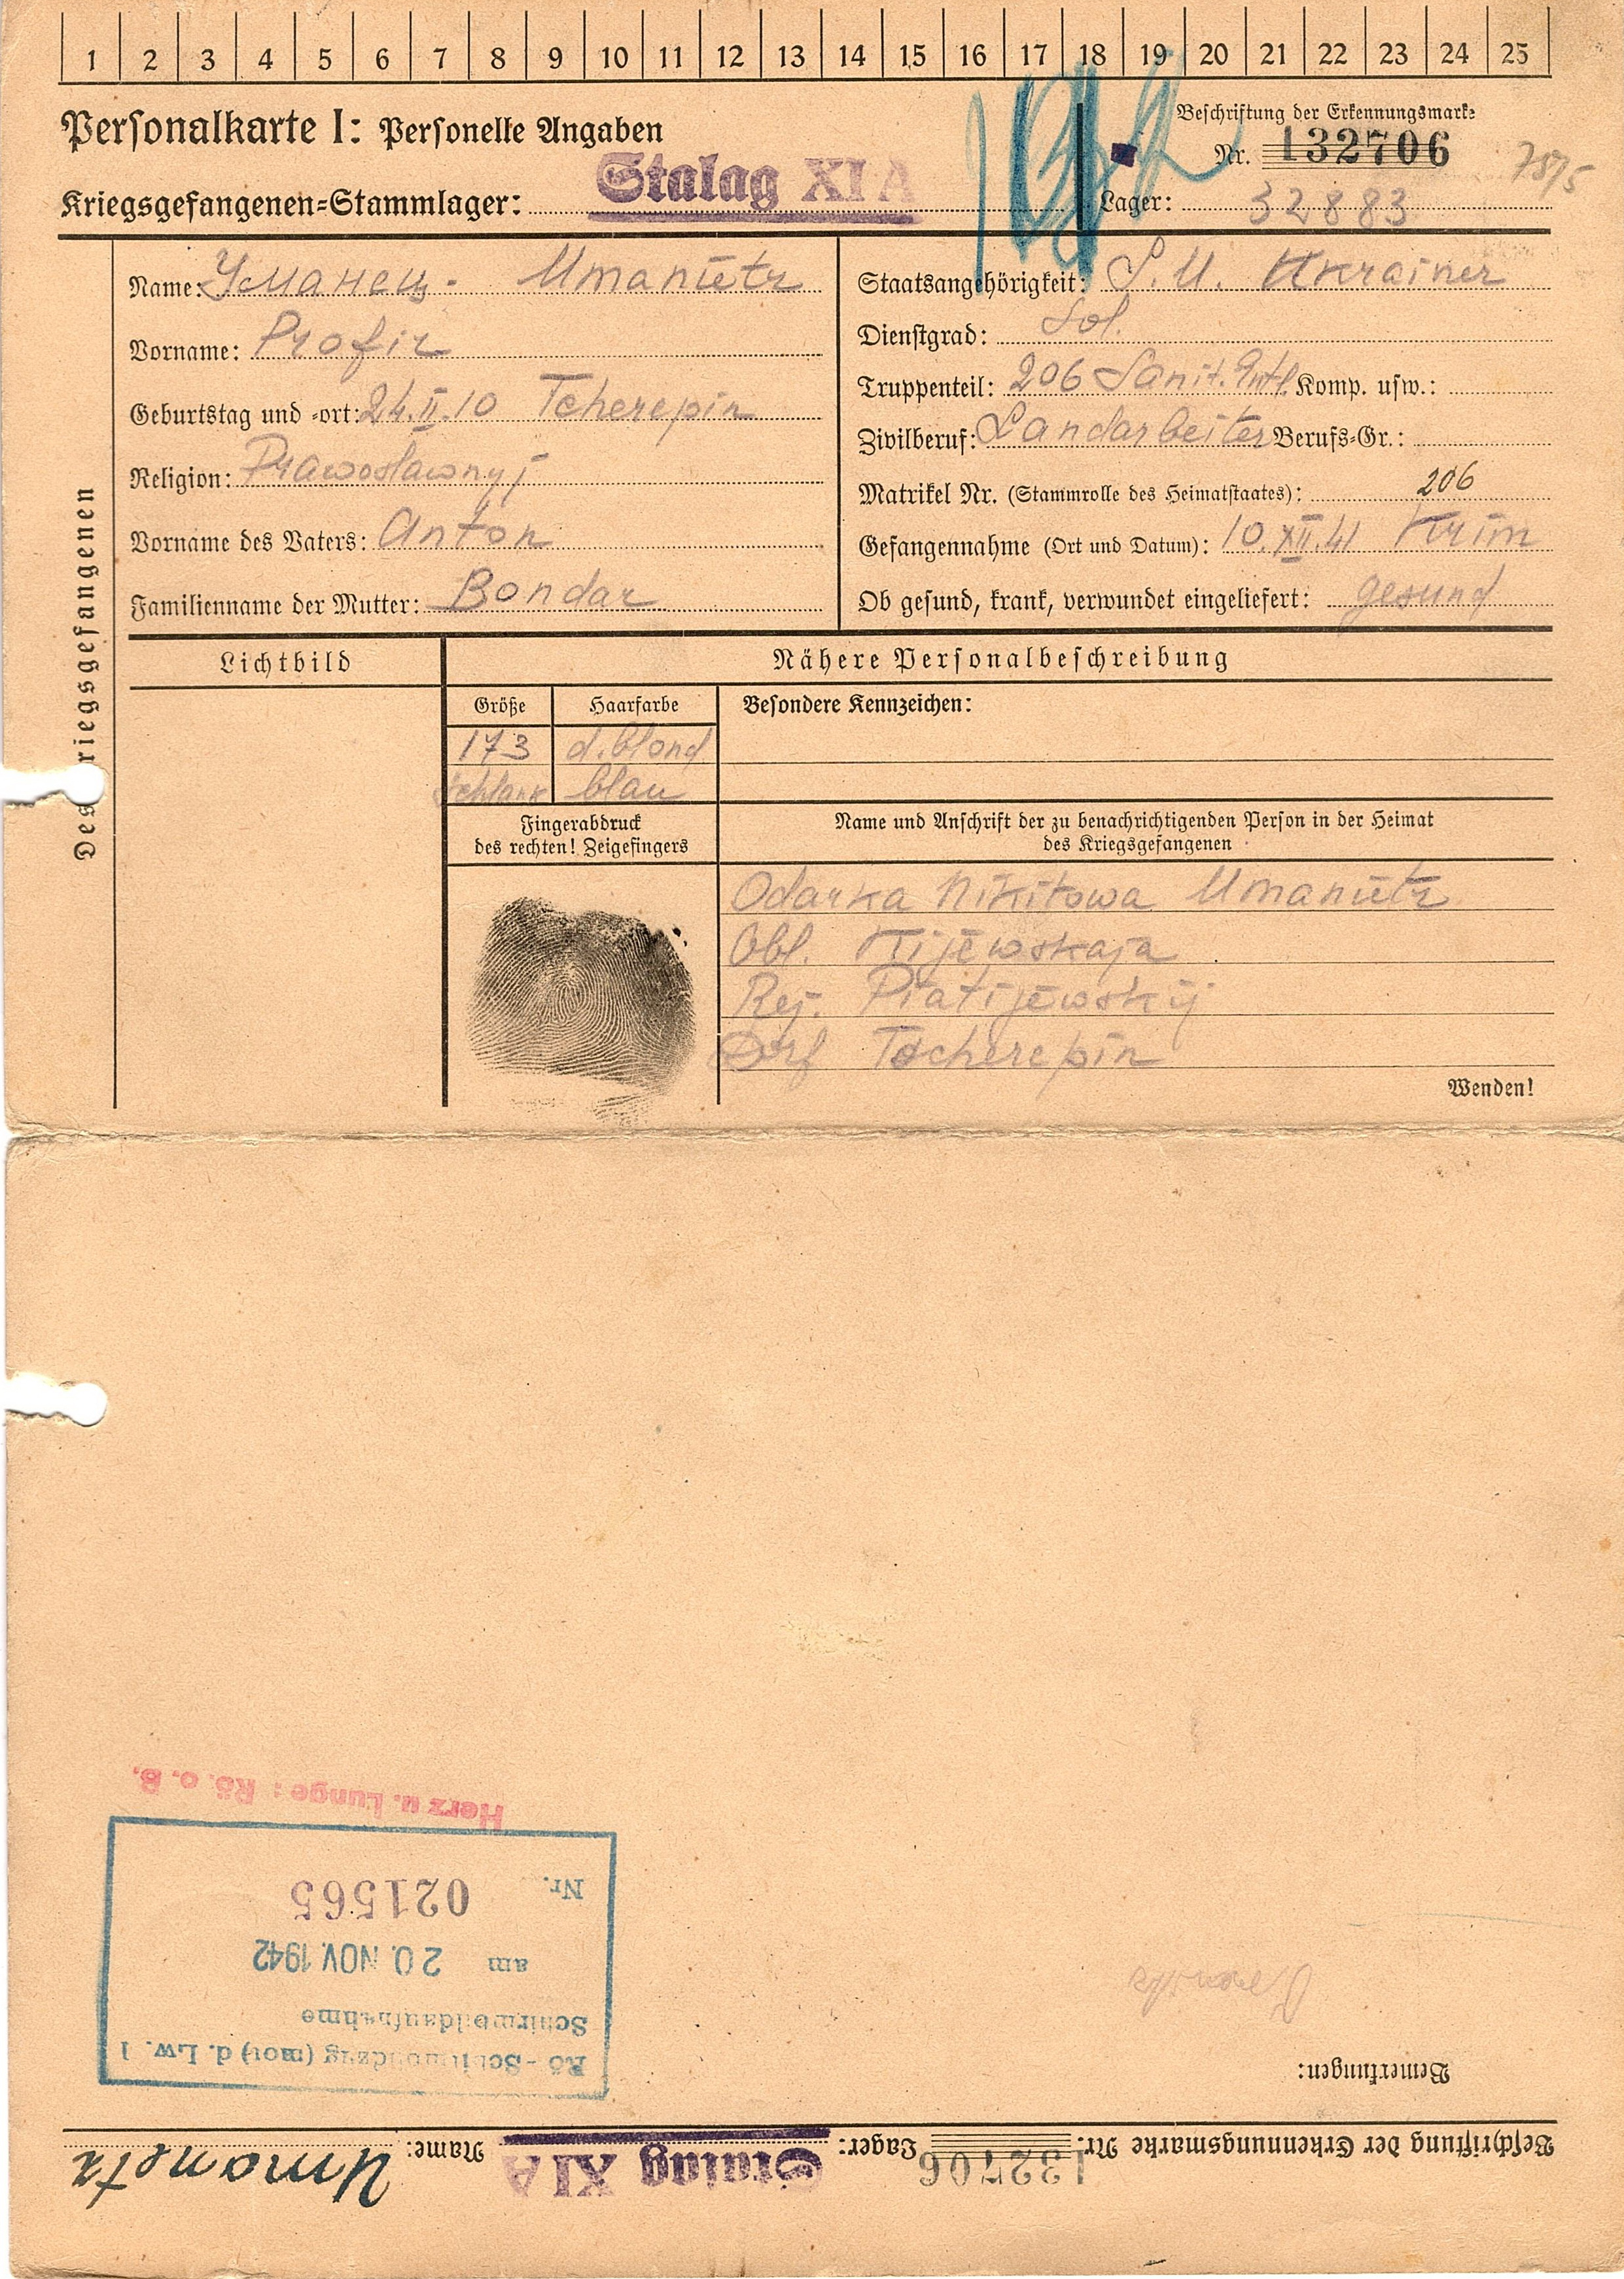 1 2 3 4 5 6 7 8 9 10 11 12 13 14 15 16 17 18 19 20 21 22 23 24 25
Personalkarte I: Personelle Angaben
Beschriftung der Erkennungsmarke
Nr. 132706
Kriegsgefangenen=Stammlager: Stalag XI A
Lager: 32883
Des Kriegsgefangenen
Name: Уманец. Umanietz
Vorname: Profir
Geburtstag und =ort: 24.II.10 Tcherepin
Religion: Prawoslawnyj
Vorname des Vaters: Anton
Familienname der Mutter: Bondar
Staatsangehörigkeit: S.U. Ukrainer
Dienstgrad: Sol.
Truppenteil: 206 Sanit. Komp. usw.:
Zivilberuf: Landarbeiter Berufs=Gr.:
Matrikel Nr. (Stammrolle des Heimatstaates): 206
Gefangennahme (Ort und Datum): 10.XII.41 Krim
Ob gesund, krank, verwundet eingeliefert: gesund
Lichtbild
Nähere Personalbeschreibung
Größe Haarfarbe Besondere Kennzeichen:
173 d.blond
schlank blau
Fingerabdruck
des rechten! Zeigefingers
Name und Anschrift der zu benachrichtigenden Person in der Heimat
des Kriegsgefangenen
Odarka Nikitowa Umanietz
Obl. Kijewskaja
Rej. Piatijewskij
Dorf Tscherepin
Wenden!
Beschriftung der Erkennungsmarke Nr. 132706 Lager: Stalag XI A Name: Umanetz
Bemerkungen:
Rö - Schirmbildzug (mot) d. Lw. 1
Schirmbildaufnahme
am 20. NOV. 1942
Nr. 021565
Herz u. Lunge: Rö. o. B.